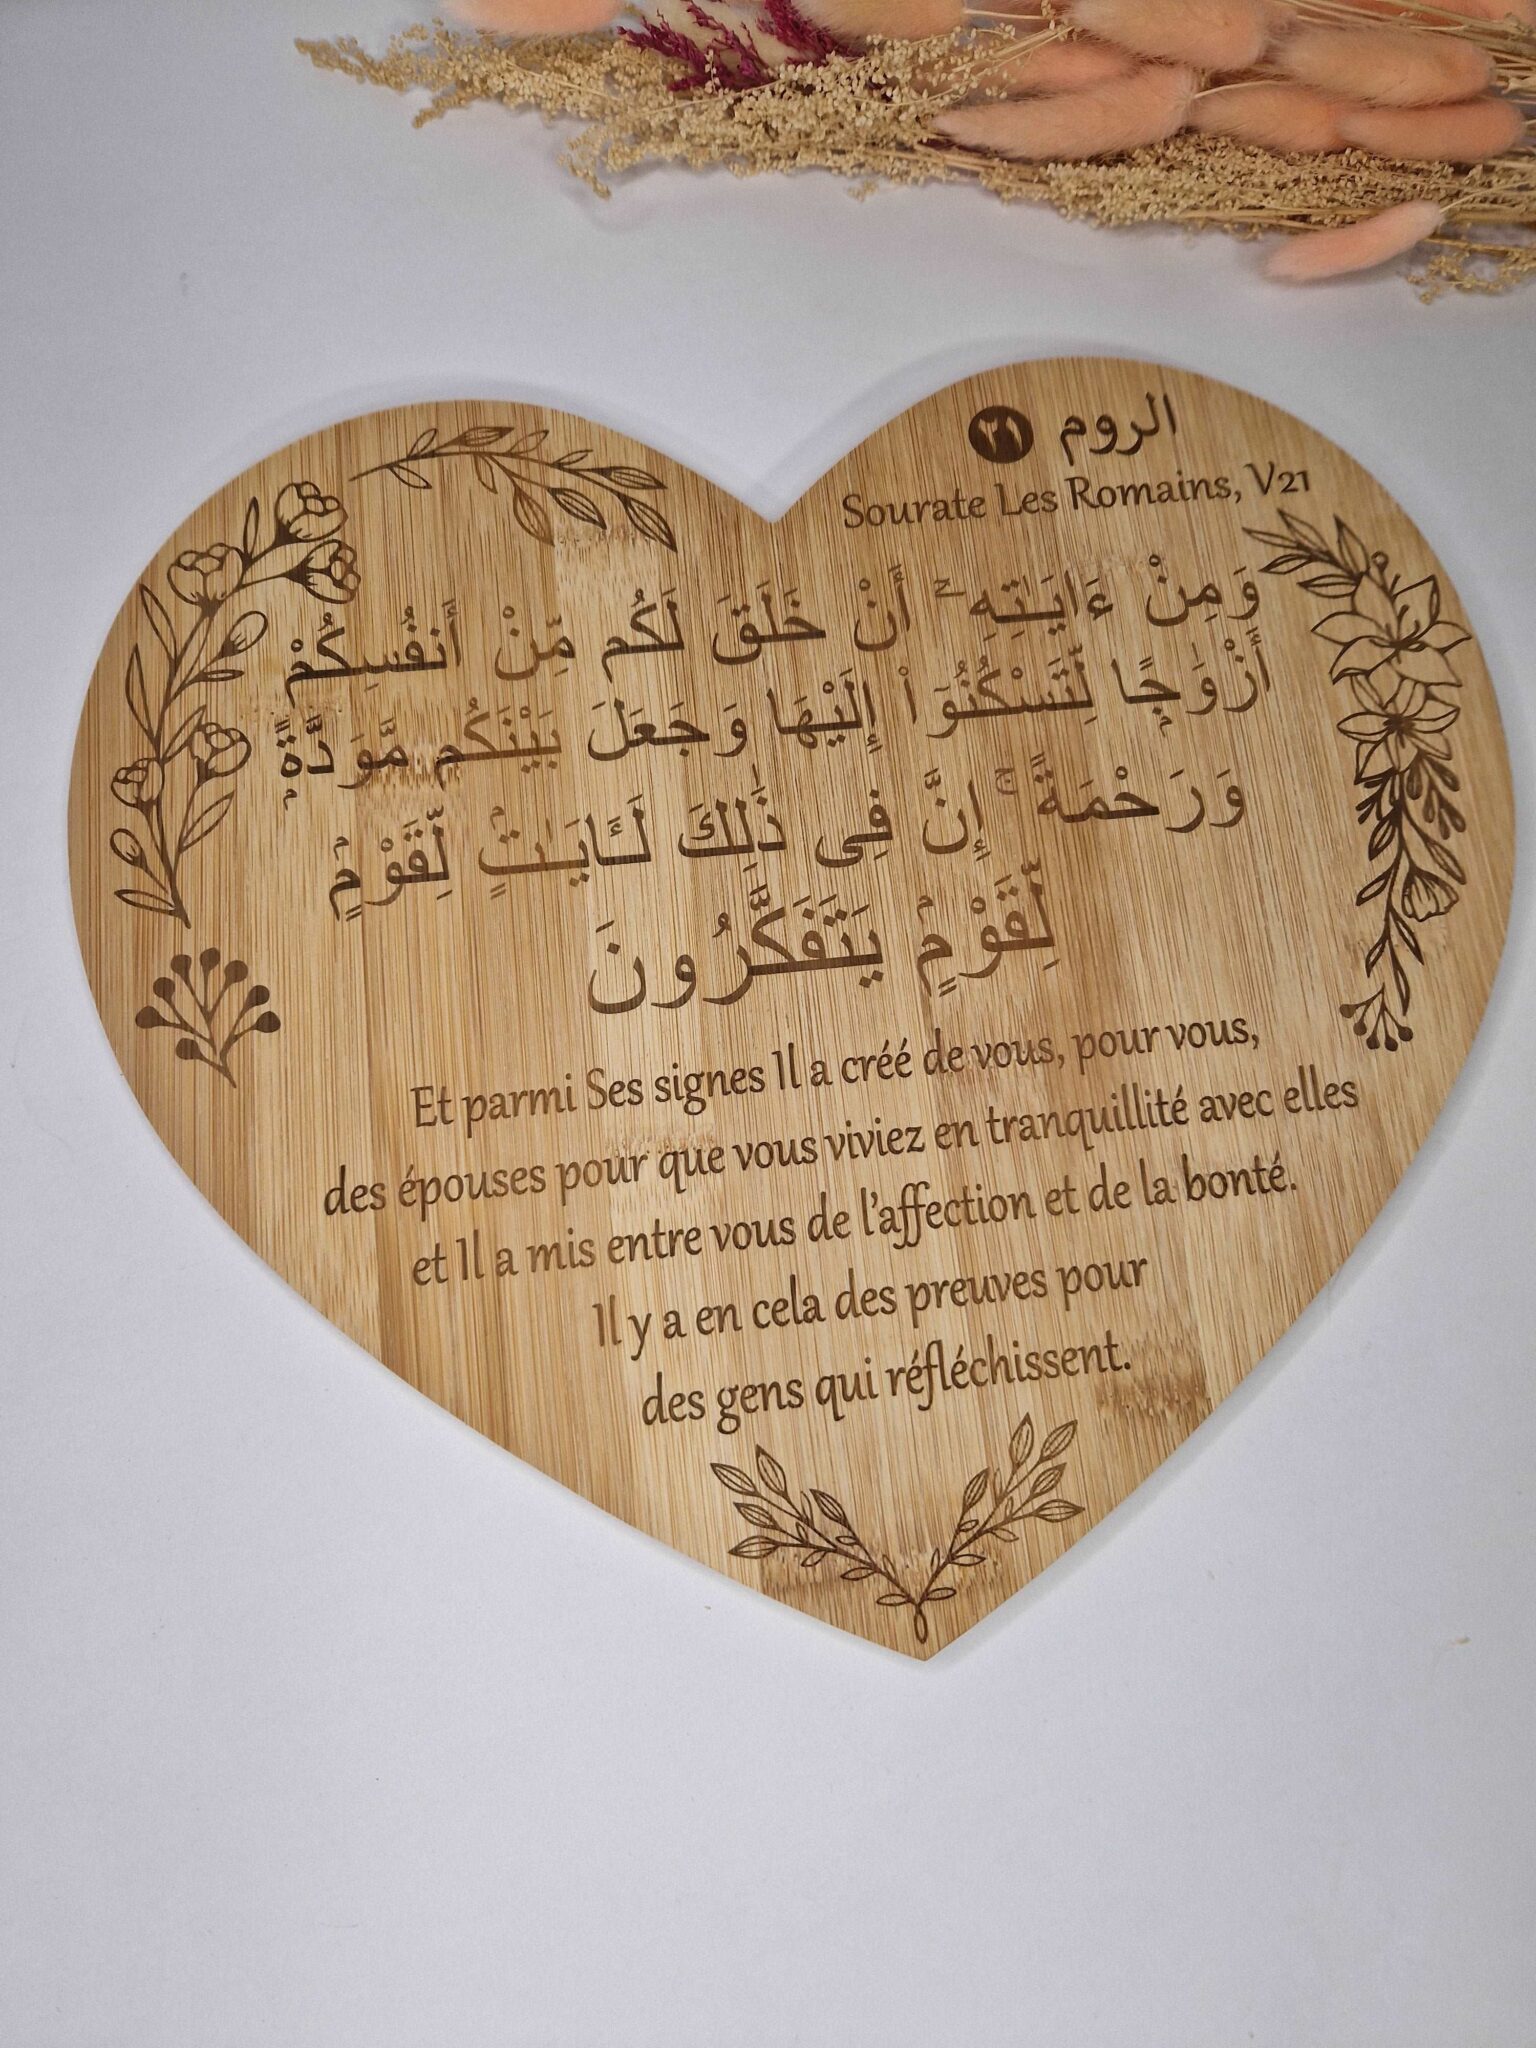 الروم ٢١
Sourate Les Romains, V21
وَمِنْ ءَايَـٰتِهِۦٓ أَنْ خَلَقَ لَكُم مِّنْ أَنفُسِكُمْ
أَزْوَٰجًۭا لِّتَسْكُنُوٓا۟ إِلَيْهَا وَجَعَلَ بَيْنَكُم مَّوَدَّةًۭ
وَرَحْمَةً ۚ إِنَّ فِى ذَٰلِكَ لَـَٔايَـٰتٍۢ لِّقَوْمٍۢ
لِّقَوْمٍۢ يَتَفَكَّرُونَ
Et parmi Ses signes Il a créé de vous, pour vous,
des épouses pour que vous viviez en tranquillité avec elles
et Il a mis entre vous de l'affection et de la bonté.
Il y a en cela des preuves pour
des gens qui réfléchissent.